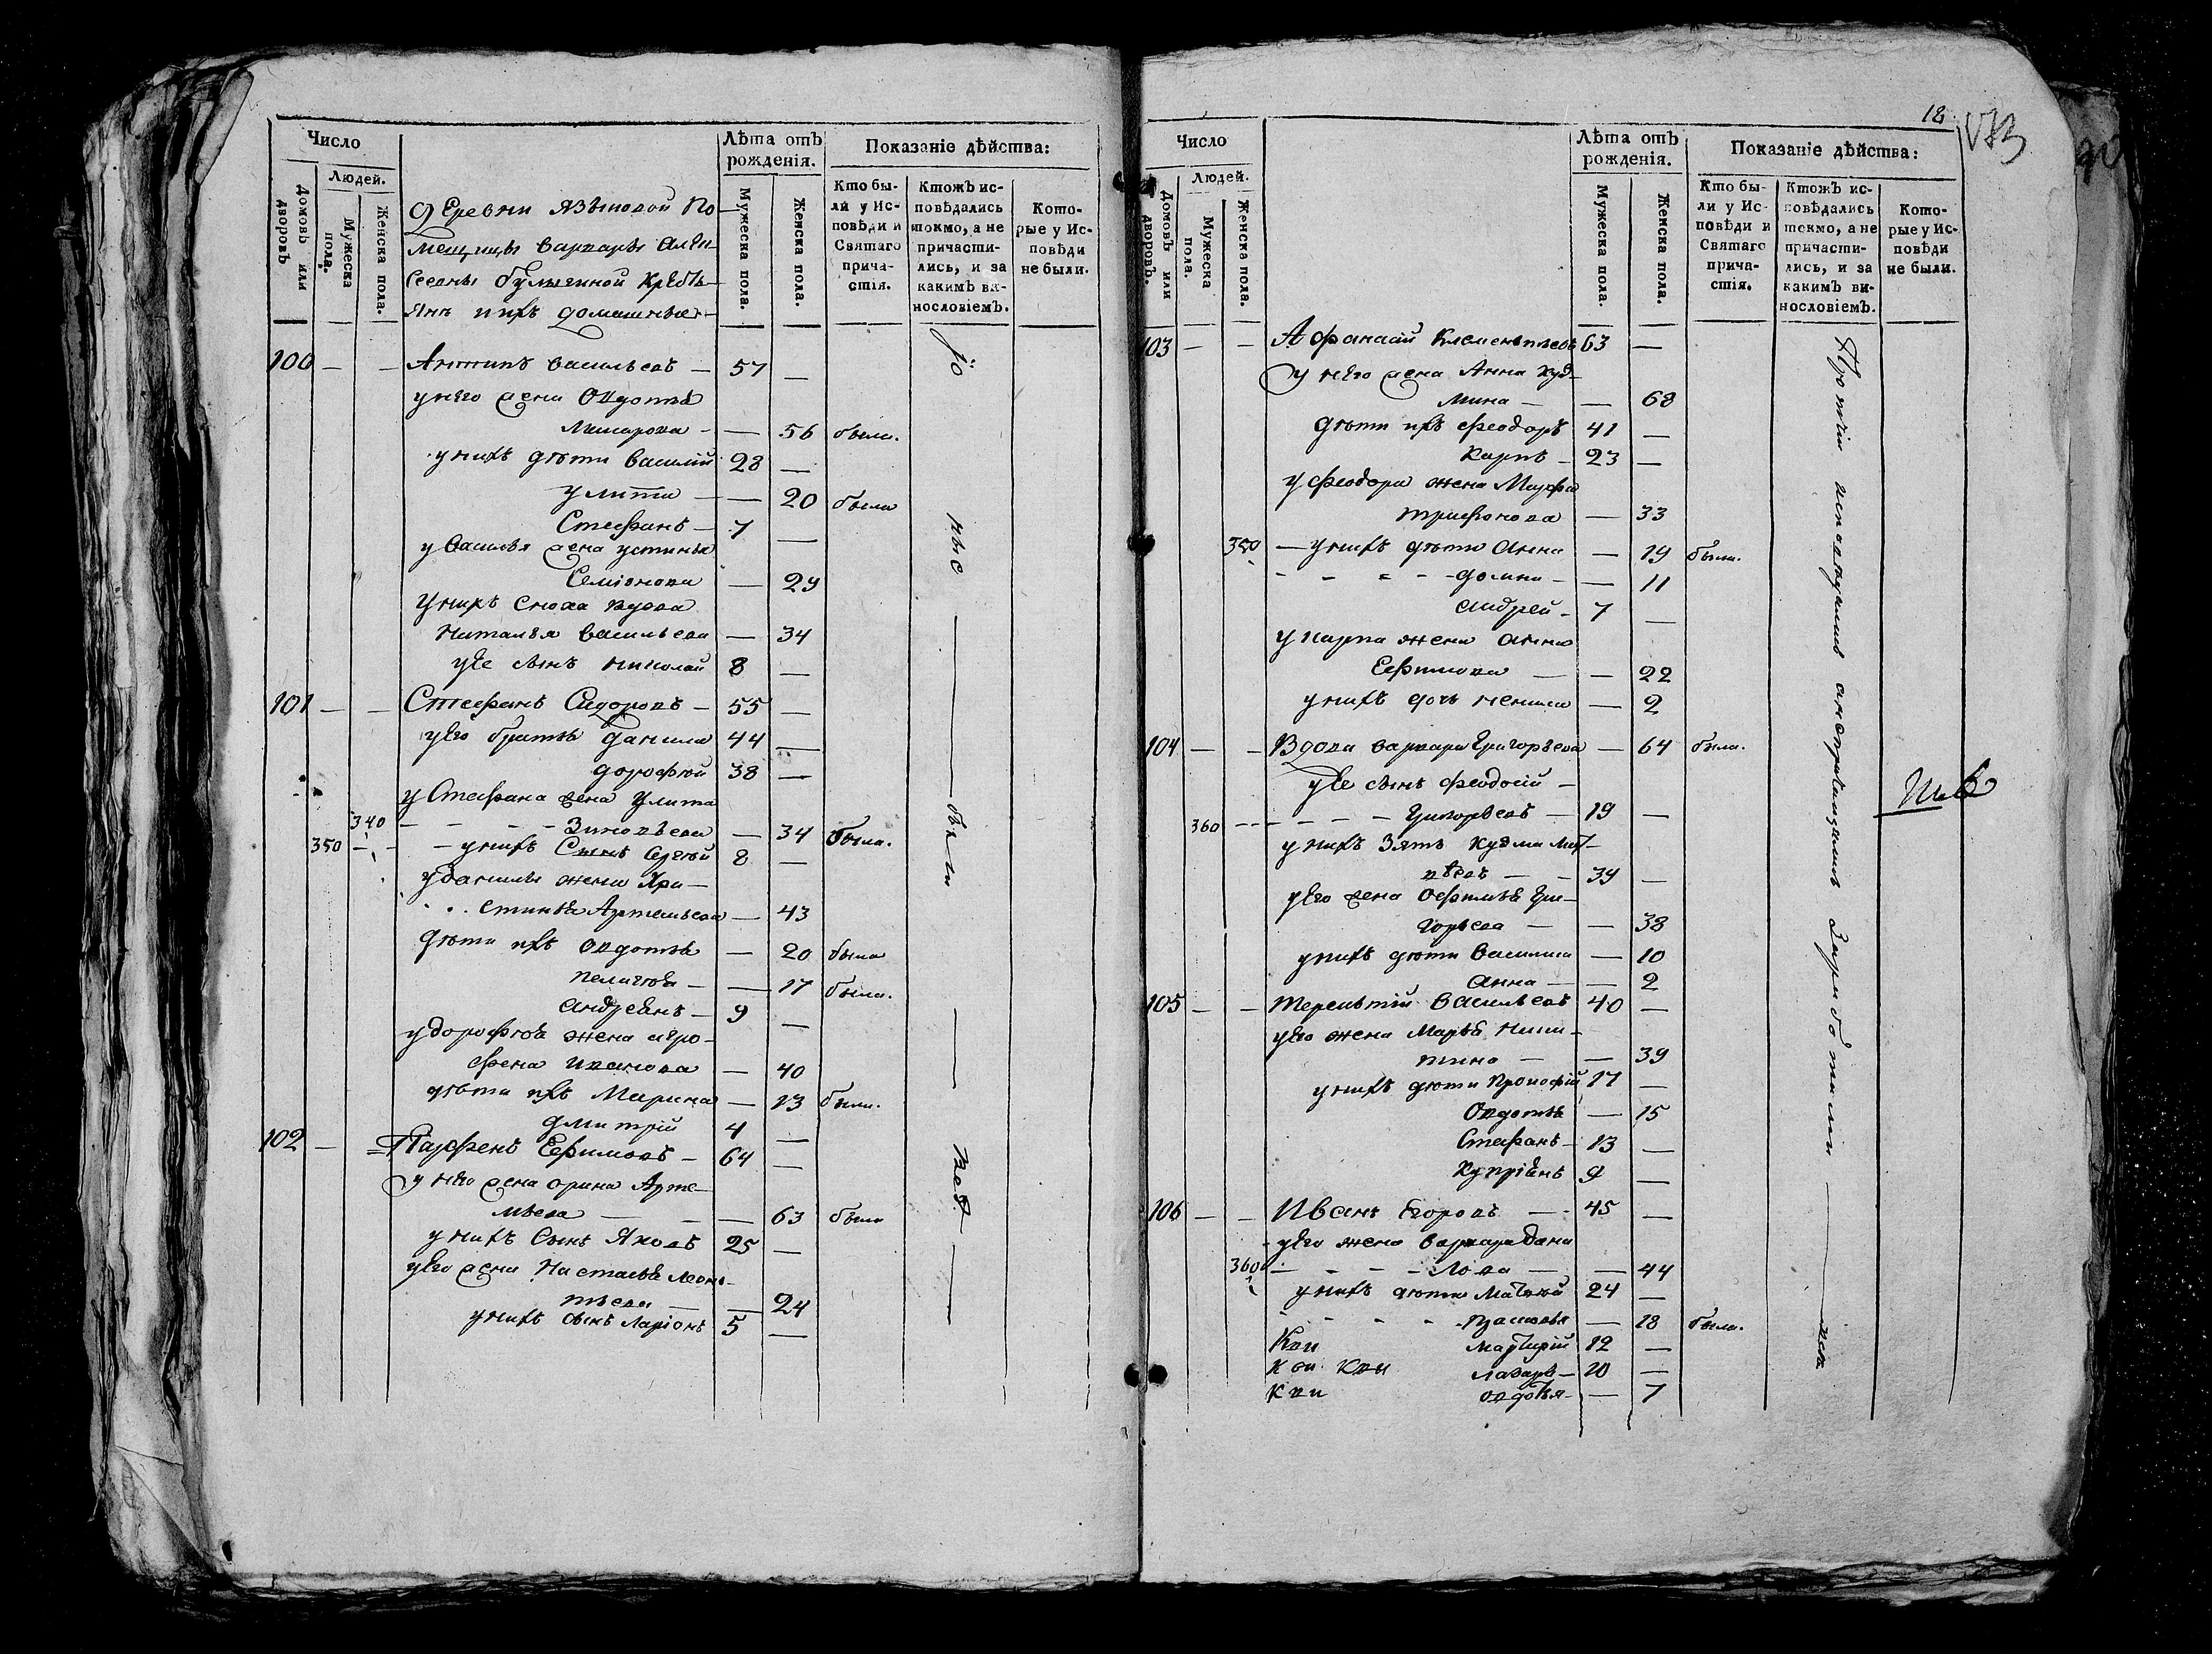 Число
Людей.
Домовъ или дворовъ
Мужеска пола.
Женска пола.
Лѣта отъ рожденія.
Мужеска пола.
Женска пола.
Показаніе дѣйства:
Кто бы-
ли у Ис-
повѣди и
Святаго
прича-
стія.
Ктожъ ис-
повѣдались
токмо, а не
причасти-
лись, и за
какимъ ви-
нословіемъ.
Кото-
рые у Ис-
повѣди
не были.
Деревни Языковой По-
мещицы Варвары Алек
сеевны булыгиной кресть-
янъ и ихъ домашныя
100 — — Антипъ Васильевъ — 57 —
у него жена Овдотья
— 56 была.
у нихъ дѣти Василій 28 —
улита — — 20 была
Стефанъ — 7 —
у Василья жена устинья
Семіонова — 29
У нихъ сноха вдова
Наталья Васильева — 34
у ее сынъ николай 8 —
101 — — Стефанъ Сидоровъ — 55 —
у его братья Данила 44 —
дорофѣй 38 —
у Стефана жена Улита
340 — — — Зиновьева — 34 была.
350 — — — у нихъ Сынъ Сергѣй 8 —
у данилы жена Хри—
стинья Артемьева — 43
дѣти ихъ Овдотья — 20 была
пелагѣя — — 17 была.
андреянъ — 9 —
у дорофѣя жена агро-
фена иванова — 40
дѣти ихъ Марина — 13 была.
дмитрій 4 —
102 — Парфенъ Ефимовъ — 64 —
у него жена орина Арте—
мьева — — — 63 была
у нихъ Сынъ Яковъ 25 —
у его жена Настасья Леон-
тьева — — 24
у нихъ сынъ Ларіонъ 5 —
18
Число
Людей.
Домовъ или дворовъ.
Мужеска пола.
Женска пола.
Лѣта отъ рожденія.
Мужеска пола.
Женска пола.
Показаніе дѣйства:
Кто бы-
ли у Ис-
повѣди и
Святаго
прича-
стія.
Ктожъ ис-
повѣдались
токмо, а не
причасти-
лись, и за
какимъ ви-
нословіемъ.
Кото-
рые у Ис-
повѣди
не были.
103 — — Афанасій Клементьевъ 63 —
у него жена Анна куз-
мина — — 68
дѣти ихъ феодоръ 41 —
карпъ — 23 —
у феодора жена Марфа
трифонова — 33
350 — у нихъ дѣти Анна — 19 была.
— — — домна — — 11
андрей — 7 —
у карпа жена анна
Ефимова — — 22
у нихъ дочь — 2
104 — — Вдова варвара Григорьева — 64 была.
у ее сынъ феодосій —
360 — — — — Григорьевъ — 19 —
у нихъ зять кузма мат-
вѣевъ — — 39 —
у его жена Офимья Гри—
горьева — — 38
у нихъ дѣти Василиса — 10
анна — — 2
105 — — терентій Васильевъ 40 —
у его жена Марья Ники-
тина — — 39
у нихъ дѣти Прокофій 17 —
Овдотья — 15
Стефанъ — 13 —
купріянъ 9 —
106 — — Иванъ Егоровъ — 45 —
у его жена варвара Дани
360 — — — лова — — 44
у нихъ дѣти Матвѣй 24 —
— 18 была.
12 —
лазарь — 10 —
овдотья — — 7